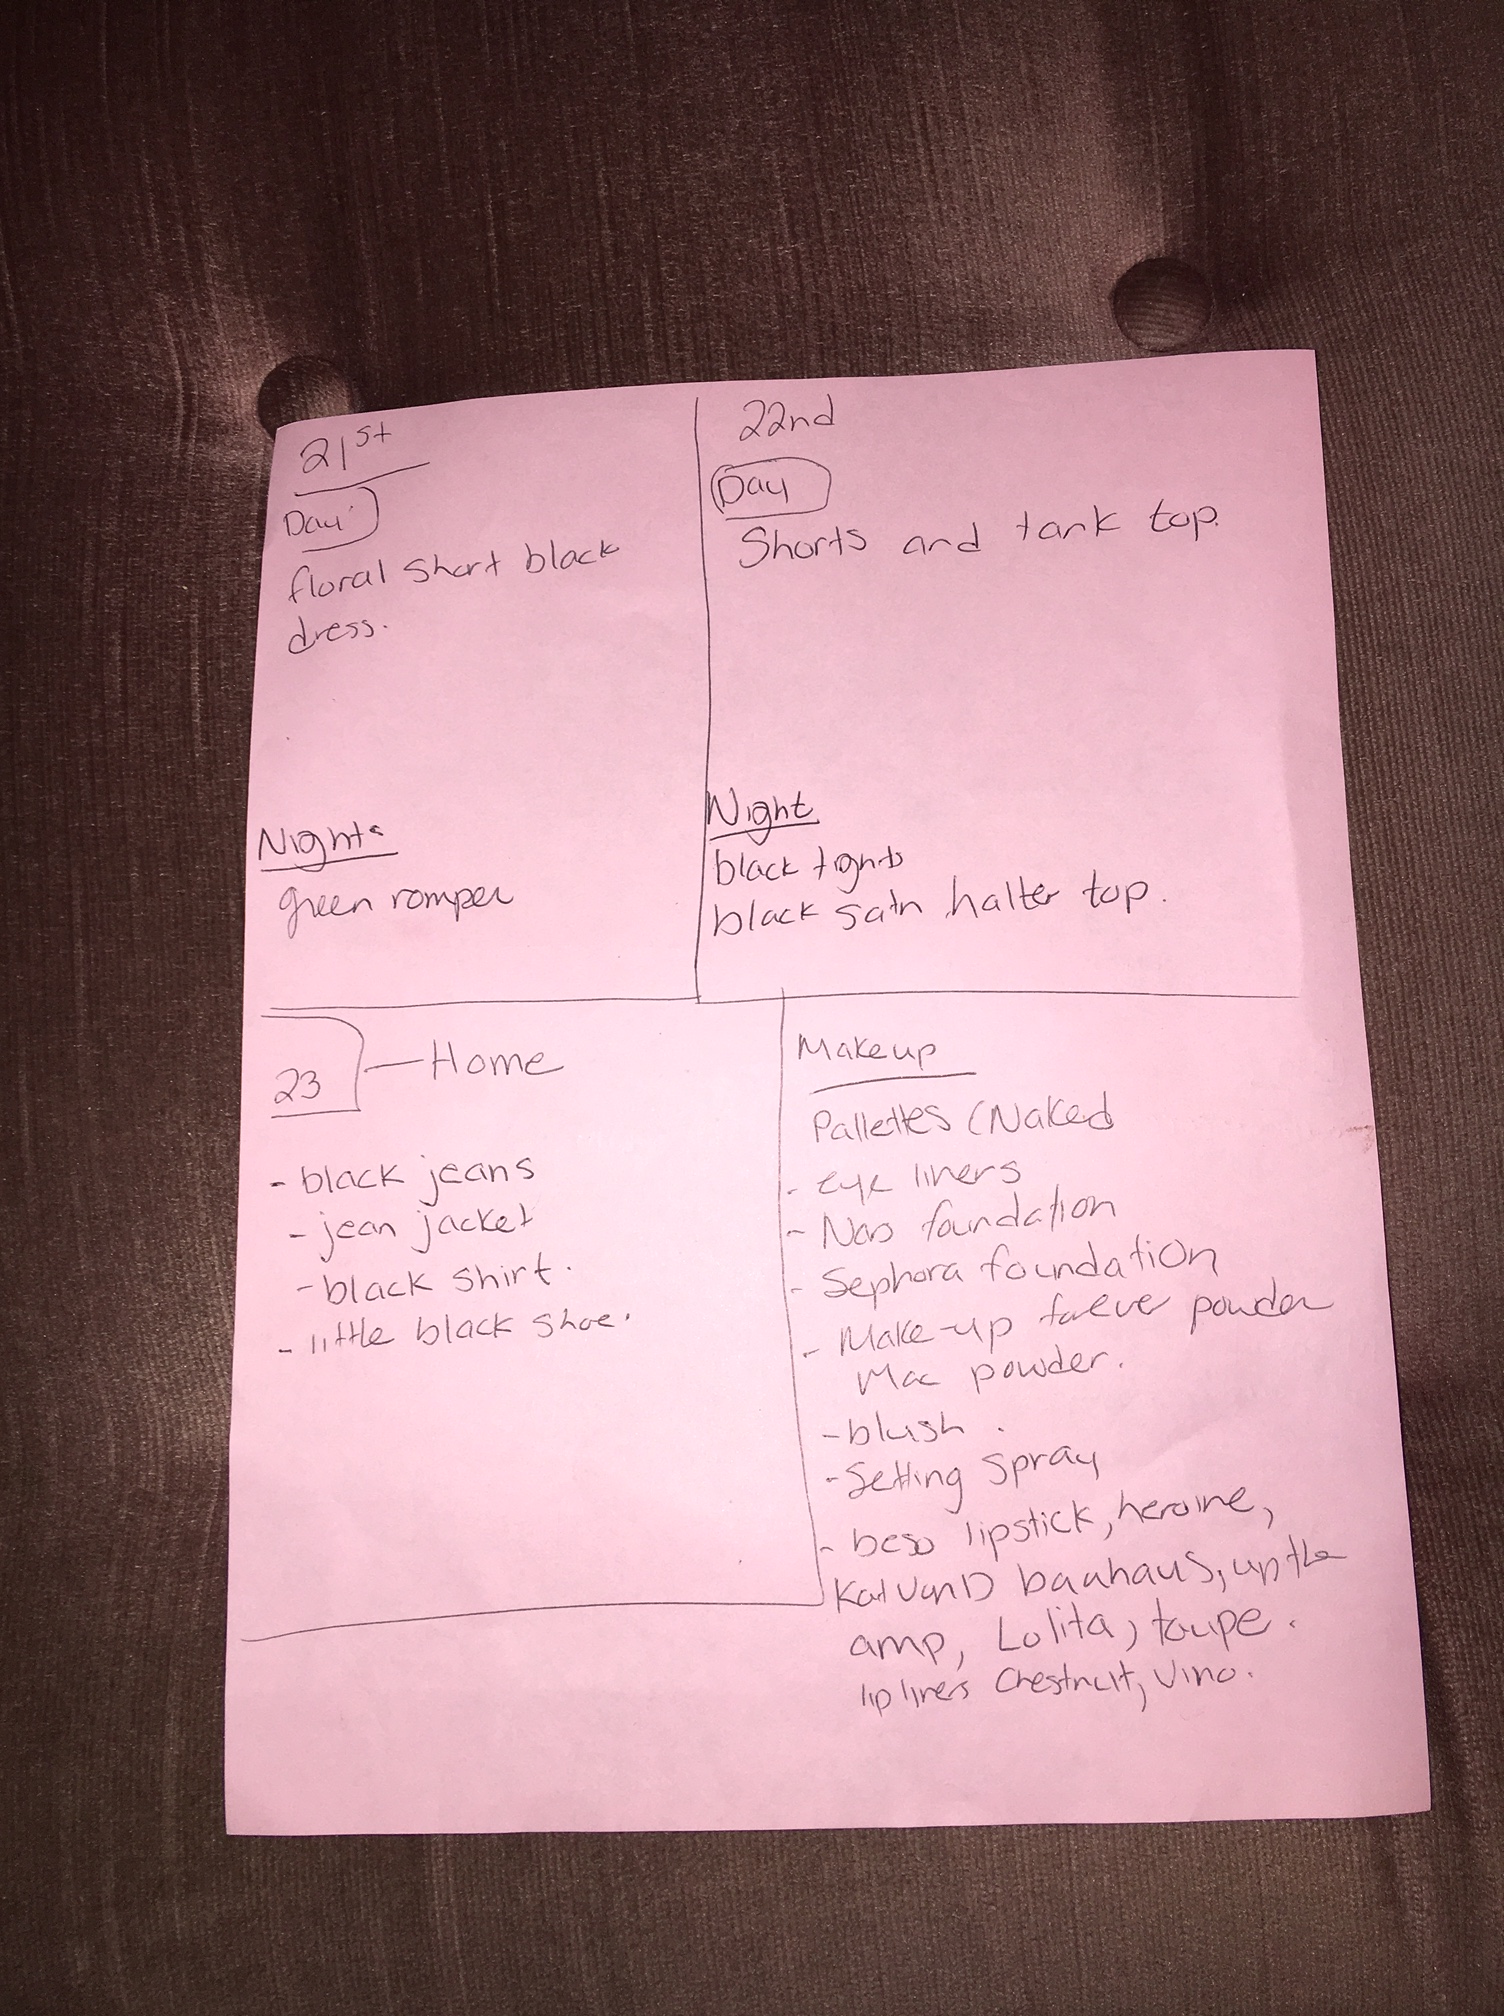 21st
Day
floral short black
dress.
Night:
green romper
22nd
Day
Shorts and tank top.
Night
black tights
black satn halter top.
23 — Home
- black jeans
- jean jacket
- black shirt.
- little black shoe.
Makeup
Pallettes (Naked
- eye liners
- Nars foundation
- Sephora foundation
- Make-up forever powder
Mac powder.
- blush.
- Setting spray
- beso lipstick, heroine,
Kat Von D bauhaus, up the
amp, Lolita, taupe.
lip liners Chestnut, Vino.